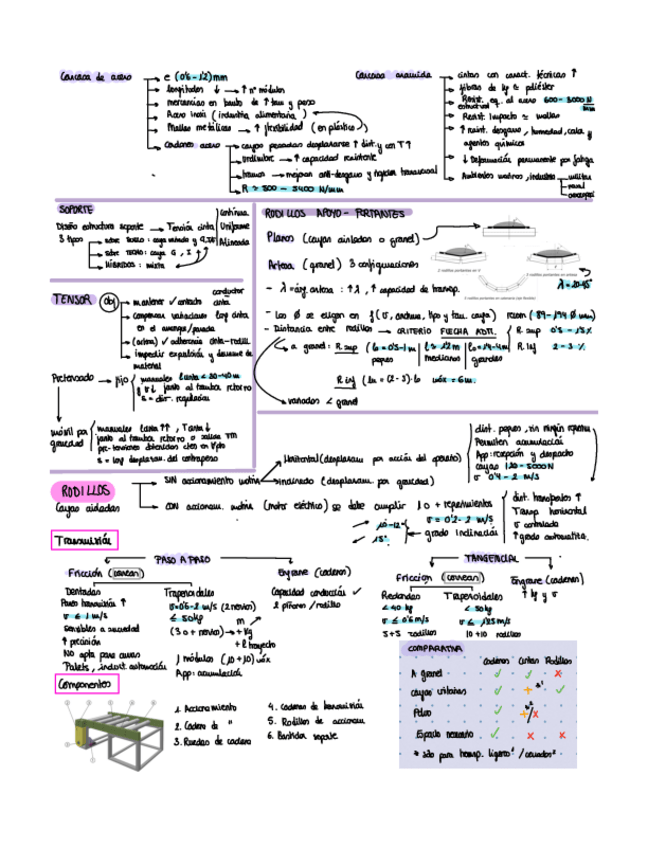 Carcaca de acero
e (0'6 - 1'2) mm
longitudes ↓ → ↑ nº módulos
mercancías en bruto de ↑ tam y peso
Acero inox (industria alimentaria)
Mallas metálicas → ↑ flexibilidad (en plástico)
cordones acero → cargas pesadas desplazarse ↑ dist. y con T↑
urdimbre → ↑ capacidad resistente
tramas → mejoran anti-desgarro y rigidez transversal
R ≈ 500 - 5400 N/mm
Carcasa aramida
cintas con caract. técnicas ↑
fibras de kp ≈ poliéster
Resist. eq. al acero 600 - 3000 N/mm
estructural
Resist. impacto ≈ mallas
↑ resist. desgarro, humedad, calor y
agentes químicos
↓ Deformación permanente por fatiga
Ambientes marinos, industria
militar
naval
SOPORTE
Diseño estructura soporte → Tensión cinta
Continua
Uniforme
Alineada
3 tipos
HÍBRIDOS: mixta
TENSOR
obj
mantener ✓ contacto cinta
conductor
compensar variaciones long cinta
en el arranque/parada
(artesa) ✓ adherencia cinta-rodill.
impedir expulsión y derrame de
material
Pretensado → fijo
manuales Lcinta < 30-40 m
junto al tambor retorno
s = dist. regulación
móvil por gravedad
manuales Lcinta ↑↑, Tcinta ↓
junto al tambor retorno o salida TM
pre-tensiones obtenidas ctes en Vpto
s = long desplazam. del contrapeso
RODILLOS APOYO - PORTANTES
Planos (cargas aisladas o granel)
Artesa (granel) 3 configuraciones
2 rodillos portantes en V
3 rodillos portantes en artesa
λ = 20-45°
- λ = áng. artesa : ↑ λ, ↑ capacidad de transp.
- Los Ø se eligen en f(v, anchura, tipo y tam. carga)
- Distancia entre rodillos → CRITERIO FLECHA ADM.
R. sup 0'5 - 1'5 %
R. inf 2 - 3 %
a granel: R. sup
pequeños
medianos
grandes
R. inf (lu = (2 - 3)·lo máx = 6m.
variados < granel
RODILLOS
Cargas aisladas
SIN accionamiento motriz
Horizontal (desplazam por acción del operario)
Inclinado (desplazam. por gravedad)
dist. pequeñas, sin ningún
Permiten acumulación
App: recepción y despacho
cargas 120 - 5000 N
v 0'4 - 2 m/s
CON accionam. motriz (motor eléctrico)
se debe cumplir
10 + requerimientos
v = 0'2 - 2 m/s
grado inclinación
10-12°
15°
dist. transportes ↑
Transp horizontal
v controlada
↑ grado automatiza.
Transmisión
PASO A PASO
Fricción (correas)
Dentadas
Par transmisión ↑
v ≤ 1 m/s
sensibles a suciedad
↑ precisión
No apta para curvas
Palets, indust. automoción
Trapezoidales
v = 0'5 - 2 m/s (2 nervios)
≤ 50 kp
(3 o + nervios) → + kg
m
+ l trayecto
1 módulos (10 + 10) máx
App: acumulación
Engrane (cadenas)
Capacidad conducción ✓
2 piñones / rodillo
TANGENCIAL
Friccion (correas)
Redondas
< 40 kp
v ≤ 0'5 m/s
5 + 5 rodillos
Trapezoidales
< 50 kp
v ≤ 1'25 m/s
10 + 10 rodillos
Engrane (cadenas)
↑ kp y v
Componentes
1. Accionamiento
2. Cadena de "
3. Ruedas de cadena
4. Cadenas de transmisión
5. Rodillos de accionam.
6. Bastidor soporte
COMPARATIVA
Cadenas Cintas Rodillos
A granel ✓ ✓ ✗
cargas unitarias ✓ + *¹ ✓
Polvo ✓ *² +/✗
Espacio necesario ✓ ✗ ✗
* sólo para transp. ligeros¹ / cerrados²